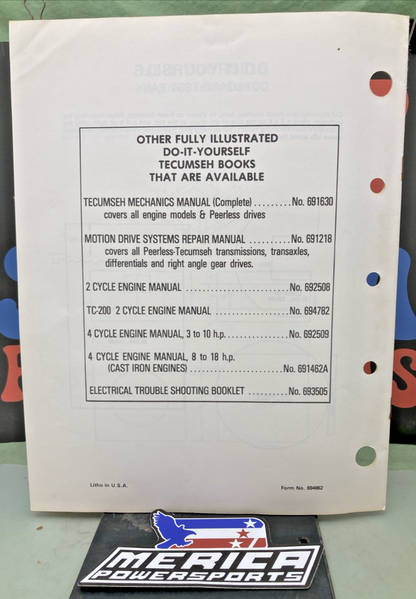 OTHER FULLY ILLUSTRATED
DO-IT-YOURSELF
TECUMSEH BOOKS
THAT ARE AVAILABLE
TECUMSEH MECHANICS MANUAL (Complete) ......... No. 691630
covers all engine models & Peerless drives
MOTION DRIVE SYSTEMS REPAIR MANUAL ......... No. 691218
covers all Peerless-Tecumseh transmissions, transaxles,
differentials and right angle gear drives.
2 CYCLE ENGINE MANUAL ...................... No. 692508
TC-200 2 CYCLE ENGINE MANUAL ............... No. 694782
4 CYCLE ENGINE MANUAL, 3 to 10 h.p. ............ No. 692509
4 CYCLE ENGINE MANUAL, 8 to 18 h.p.
(CAST IRON ENGINES) ..................... No. 691462A
ELECTRICAL TROUBLE SHOOTING BOOKLET .......... No. 693505
Litho in U.S.A.
Form No. 694862
MERICA
POWERSPORTS